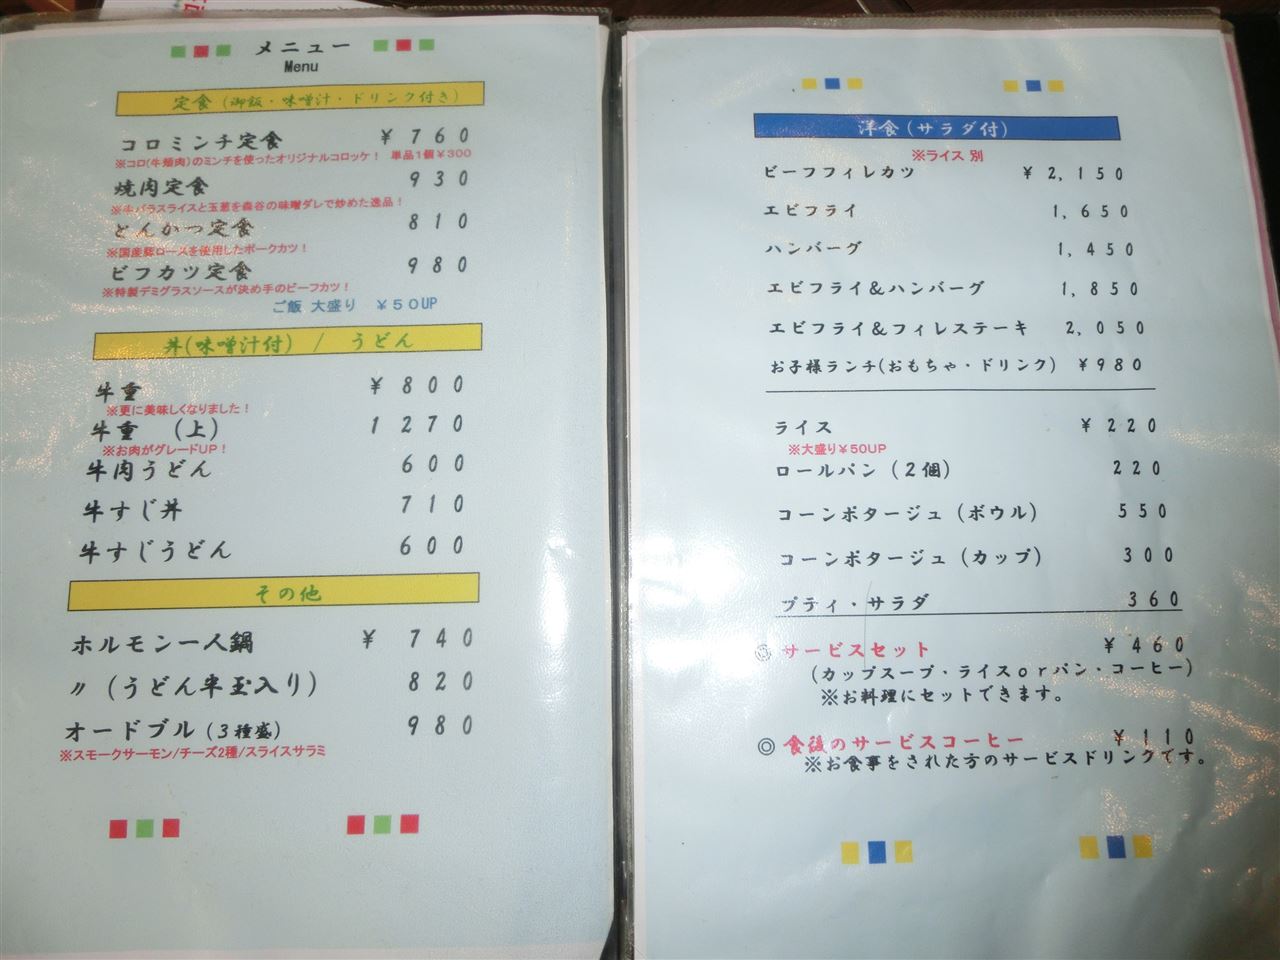 メニュー
Menu
定食(御飯・味噌汁・ドリンク付き)
コロミンチ定食 ¥760
※コロ(牛頬肉)のミンチを使ったオリジナルコロッケ! 単品1個¥300
焼肉定食 930
※牛バラスライスと玉葱を森谷の味噌ダレで炒めた逸品!
とんかつ定食 810
※国産豚ロースを使用したポークカツ!
ビフカツ定食 980
※特製デミグラスソースが決め手のビーフカツ!
ご飯 大盛り ¥50UP
丼(味噌汁付) / うどん
牛重 ¥800
※更に美味しくなりました!
牛重 (上) 1270
※お肉がグレードUP!
牛肉うどん 600
牛すじ丼 710
牛すじうどん 600
その他
ホルモン一人鍋 ¥740
〃(うどん半玉入り) 820
オードブル(3種盛) 980
※スモークサーモン/チーズ2種/スライスサラミ
洋食(サラダ付)
※ライス 別
ビーフフィレカツ ¥2,150
エビフライ 1,650
ハンバーグ 1,450
エビフライ&ハンバーグ 1,850
エビフライ&フィレステーキ 2,050
お子様ランチ(おもちゃ・ドリンク) ¥980
ライス ¥220
※大盛り¥50UP
ロールパン(2個) 220
コーンポタージュ(ボウル) 550
コーンポタージュ(カップ) 300
プティ・サラダ 360
◎ サービスセット ¥460
(カップスープ・ライスorパン・コーヒー)
※お料理にセットできます。
◎ 食後のサービスコーヒー ¥110
※お食事をされた方のサービスドリンクです。